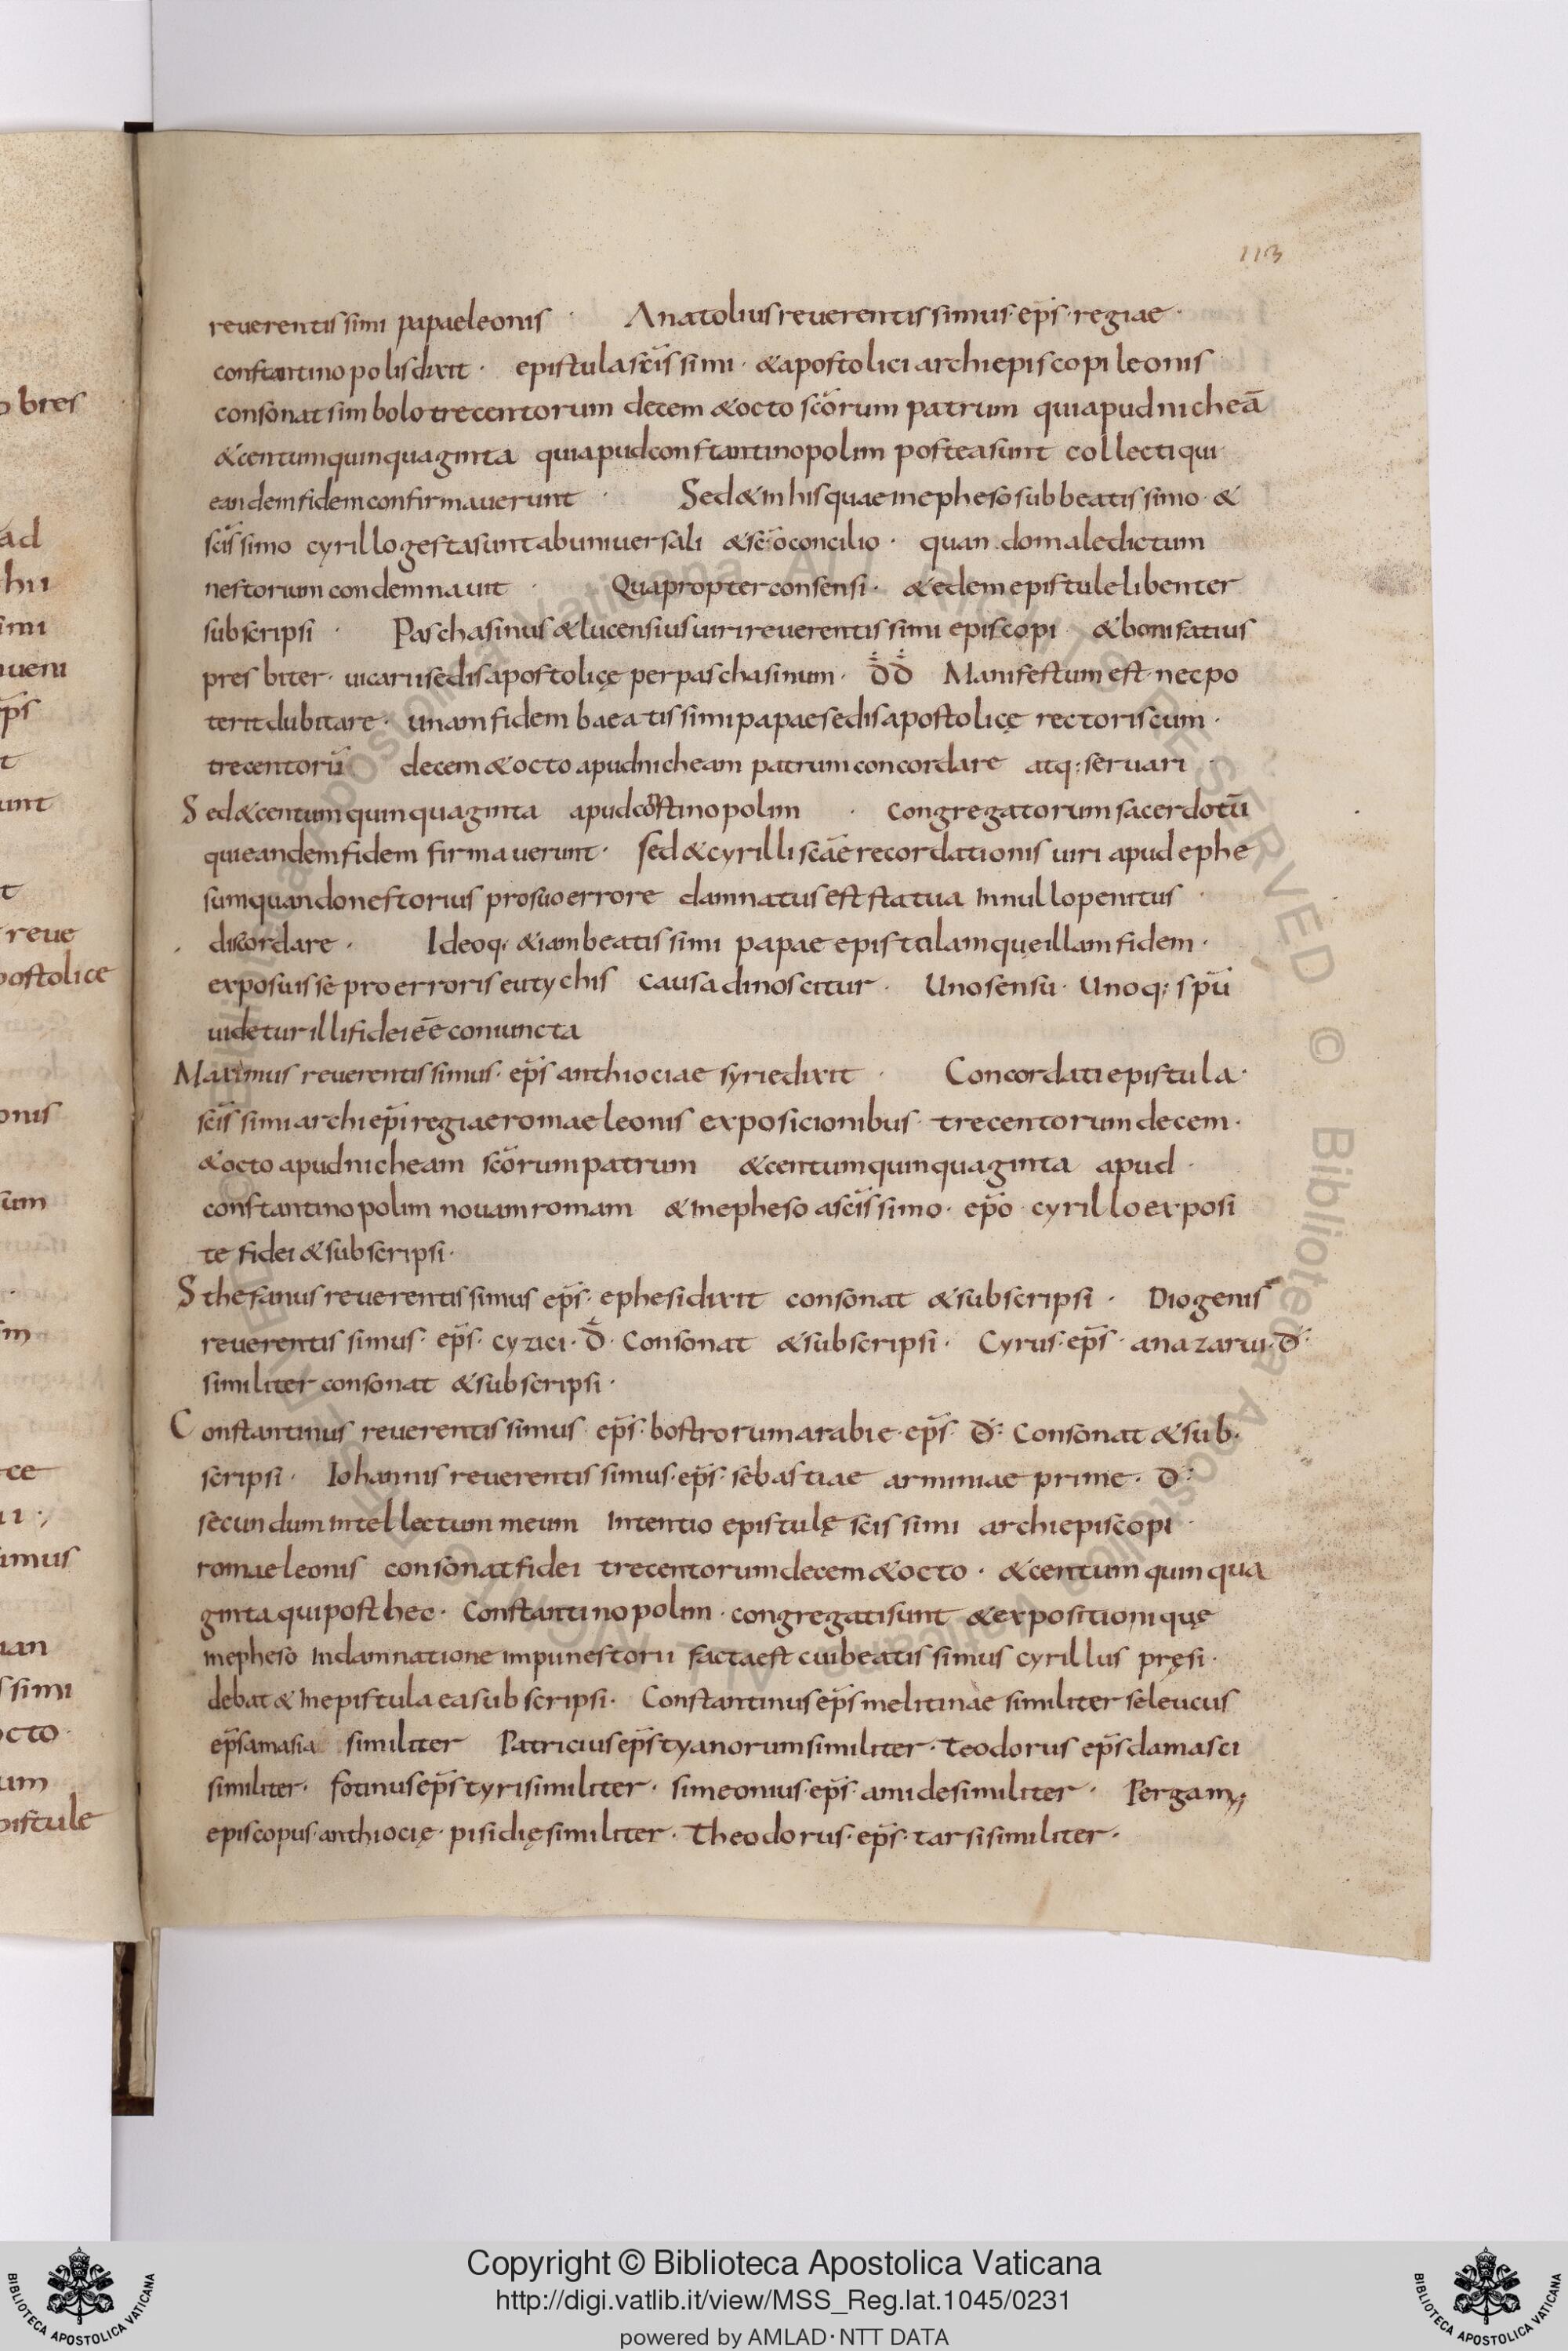 113
reuerentissimi papae leonis · Anatolius reuerentissimus · ep̄s · regiae ·
constantinopolis dixit · epistula sc̄issimi · & apostolici archiepiscopi leonis
consonat simbolo trecentorum decem & octo sc̄orum patrum qui apud nicheā
& centum quinquaginta qui apud constantinopolim postea sunt collecti qui
eandem fidem confirmauerunt · Sed & in his quae in epheso sub beatissimo · &
sc̄issimo cyrillo gesta sunt ab uniuersali & sc̄o concilio · quando maledictum
nestorium condemnauit · Quapropter consensi · & edem epistule libenter
subscripsi · Paschasinus & lucensius uiri reuerentissimi episcopi & bonifatius
presbiter · uicarii sedis apostolicę per paschasinum · d̄d̄ Manifestum est · nec po
terit dubitare · unam fidem baeatissimi papae sedis apostolicę rectoris cum ·
trecentorū decem & octo apud nicheam patrum concordare atq: seruari ·
Sed & centum quinquaginta apud cōstinopolim · congregatorum sacerdotū
qui eandem fidem firmauerunt · sed & cyrilli sc̄ae recordationis uiri apud ephe
sum quando nestorius pro suo errore damnatus est statua in nullo penitus ·
discordare · Ideoq: & iam beatissimi papae epistulam quę illam fidem ·
exposuisse pro erroris eutychis causa dinoscitur · Uno sensu · Unoq: sp̄u
uidetur illi fidei ēe coniuncta
Maximus reuerentissimus · ep̄s anthiociae syrie dixit · Concordati epistula ·
sc̄issimi archiep̄i regiae romae leonis exposicionibus · trecentorum decem ·
& octo apud nicheam sc̄orum patrum & centum quinquaginta apud ·
constantinopolim nouam romam & in epheso a sc̄issimo · ep̄o · cyrillo exposi
te fidei & subscripsi ·
Sthefanus reuerentissimus ep̄s · ephesi dixit consonat & subscripsi · Diogenis
reuerentissimus · ep̄s · cyzici · d̄ · Consonat & subscripsi · Cyrus · ep̄s · anazarui · d̄ ·
similiter consonat & subscripsi ·
Constantinus reuerentissimus ep̄s · bostrorum arabie · ep̄s · d̄ : Consonat & sub ·
scripsi · Iohannis reuerentissimus · ep̄s · sebastiae arminiae prime · d̄ :
secundum intellectum meum Intentio epistulę scissimi archiepiscopi ·
romae leonis consonat fidei trecentorum decem & octo · & centum quinqua
ginta qui post hec · Constantinopolim · congregati sunt & expositioni quę
inepheso In damnatione impii nestorii facta est cui beatissimus cyrillus pręsi ·
debat & In epistula ea subscripsi · Constantinus ep̄s melitinae similiter seleucus
ep̄s amasia similiter Patricius ep̄s tyanorum similiter · teodorus ep̄s damasci
similiter · fotinus ep̄s tyri similiter · simeonius · ep̄s · amide similiter · Pergam;
episcopus · anthiocię · pisidię similiter · theodorus · ep̄s · tarsi similiter ·
Copyright © Biblioteca Apostolica Vaticana
http://digi.vatlib.it/view/MSS_Reg.lat.1045/0231
powered by AMLAD·NTT DATA
BIBLIOTECA APOSTOLICA VATICANA
BIBLIOTECA APOSTOLICA VATICANA